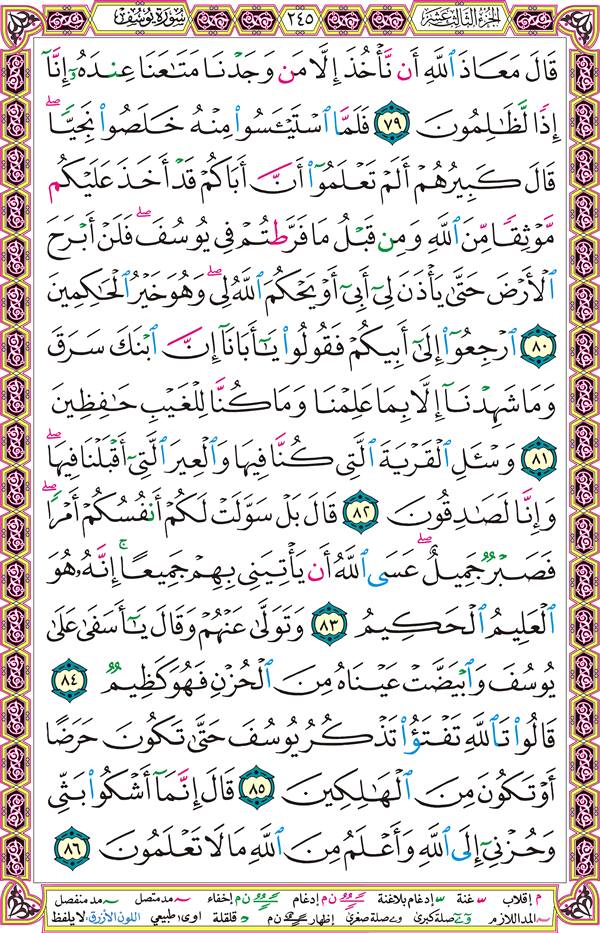 الجزء الثالث عشر ٢٤٥ سورة يوسف
قَالَ مَعَاذَ ٱللَّهِ أَن نَّأْخُذَ إِلَّا مَن وَجَدْنَا مَتَٰعَنَا عِندَهُۥٓ إِنَّآ
إِذًا لَّظَٰلِمُونَ ٧٩ فَلَمَّا ٱسْتَيْـَٔسُوا۟ مِنْهُ خَلَصُوا۟ نَجِيًّا ۖ
قَالَ كَبِيرُهُمْ أَلَمْ تَعْلَمُوٓا۟ أَنَّ أَبَاكُمْ قَدْ أَخَذَ عَلَيْكُم
مَّوْثِقًا مِّنَ ٱللَّهِ وَمِن قَبْلُ مَا فَرَّطتُمْ فِى يُوسُفَ ۖ فَلَنْ أَبْرَحَ
ٱلْأَرْضَ حَتَّىٰ يَأْذَنَ لِىٓ أَبِىٓ أَوْ يَحْكُمَ ٱللَّهُ لِى ۖ وَهُوَ خَيْرُ ٱلْحَٰكِمِينَ
٨٠ ٱرْجِعُوٓا۟ إِلَىٰٓ أَبِيكُمْ فَقُولُوا۟ يَٰٓأَبَانَآ إِنَّ ٱبْنَكَ سَرَقَ
وَمَا شَهِدْنَآ إِلَّا بِمَا عَلِمْنَا وَمَا كُنَّا لِلْغَيْبِ حَٰفِظِينَ
٨١ وَسْـَٔلِ ٱلْقَرْيَةَ ٱلَّتِى كُنَّا فِيهَا وَٱلْعِيرَ ٱلَّتِىٓ أَقْبَلْنَا فِيهَا ۖ
وَإِنَّا لَصَٰدِقُونَ ٨٢ قَالَ بَلْ سَوَّلَتْ لَكُمْ أَنفُسُكُمْ أَمْرًا ۖ
فَصَبْرٌ جَمِيلٌ ۖ عَسَى ٱللَّهُ أَن يَأْتِيَنِى بِهِمْ جَمِيعًا ۚ إِنَّهُۥ هُوَ
ٱلْعَلِيمُ ٱلْحَكِيمُ ٨٣ وَتَوَلَّىٰ عَنْهُمْ وَقَالَ يَٰٓأَسَفَىٰ عَلَىٰ
يُوسُفَ وَٱبْيَضَّتْ عَيْنَاهُ مِنَ ٱلْحُزْنِ فَهُوَ كَظِيمٌ ٨٤
قَالُوا۟ تَٱللَّهِ تَفْتَؤُا۟ تَذْكُرُ يُوسُفَ حَتَّىٰ تَكُونَ حَرَضًا
أَوْ تَكُونَ مِنَ ٱلْهَٰلِكِينَ ٨٥ قَالَ إِنَّمَآ أَشْكُوا۟ بَثِّى
وَحُزْنِىٓ إِلَى ٱللَّهِ وَأَعْلَمُ مِنَ ٱللَّهِ مَا لَا تَعْلَمُونَ ٨٦
م إقلاب غنة إدغام بلاغنة ن م إدغام ن م إخفاء مد متصل مد منفصل
المد اللازم صلة كبرى صلة صغرى إظهار ن م قلقلة اوى؛ طبيعي اللون الأزرق، لا يلفظ